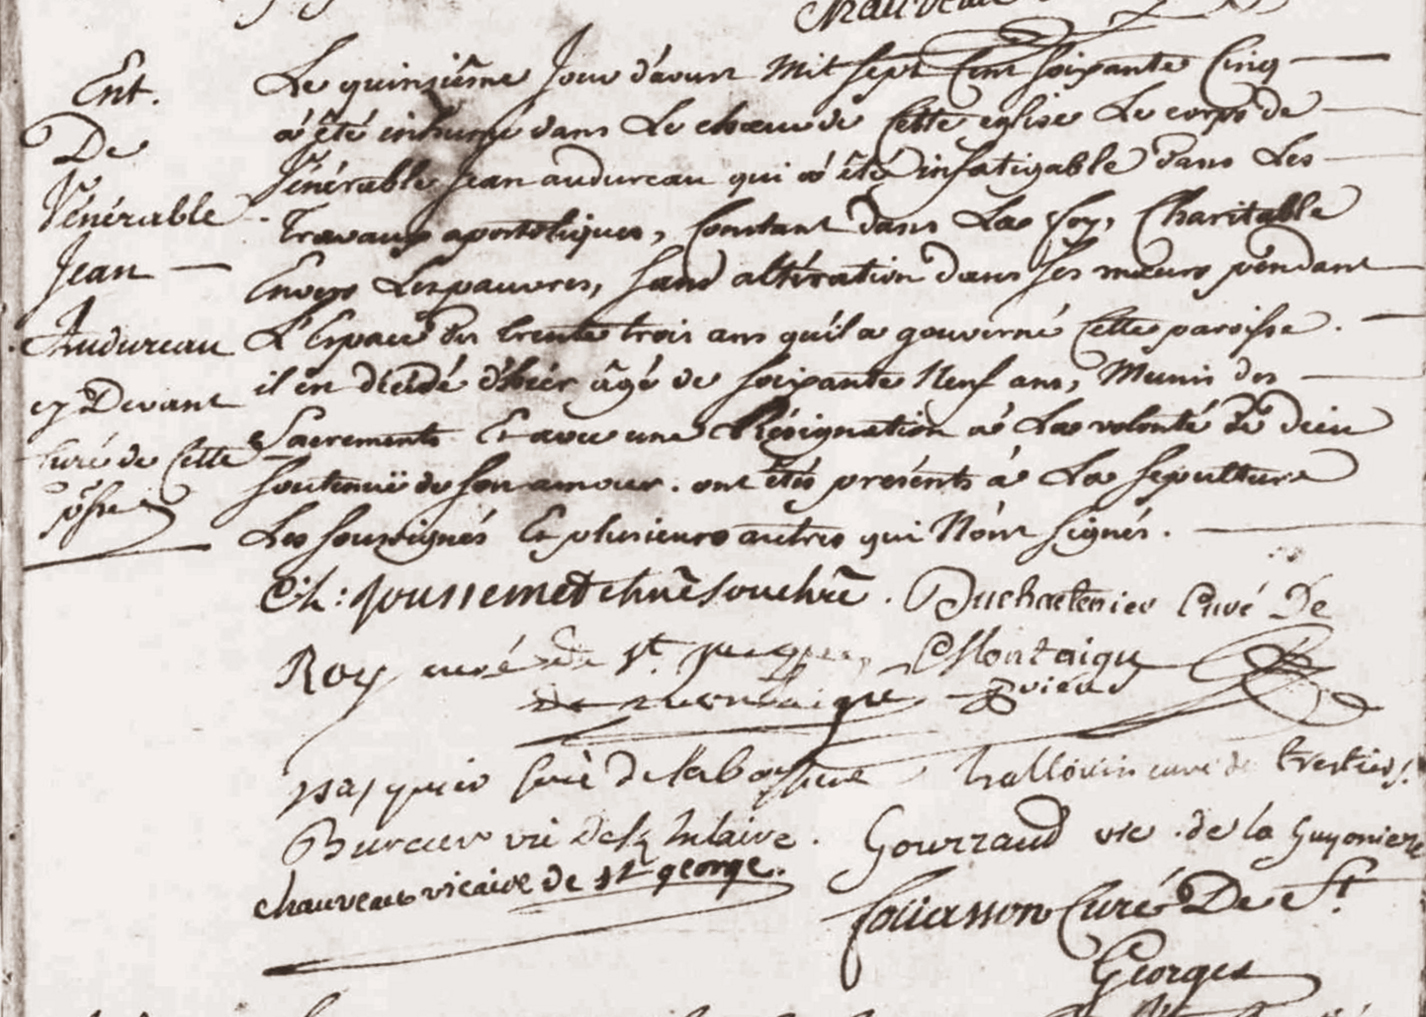 Ent.
De
Vénérable
Jean
Audureau
cy Devant
Curé de Cette
psse
Le quinziême Jour d'aoust Mil sept Cent soixante Cinq
a été inhumé dans Le choeur de Cette eglise Le corps de
Vénérable Jean audureau qui a été infatigable dans Les
Travaux apostoliques, Constant dans La foy, Charitable
Envers Les pauvres, sans altération dans ses moeurs pendant
L'Espace des trente trois ans qu'il a gouverné Cette paroisse.
il en décidé d'hier âgé de soixante Neuf ans, Munis des
Sacrements Et avec une Résignation à La volonté de dieu
soutenuë de son amour. ont étés présents à La sepulture
Les soussignés Et plusieurs autres qui N'ont signés.
Ch: Joussemet Curé De
Roy curé de st. jacques, Montaigu
de montaigu
pasquier Curé De la boissiere hallouin curé de treslies
vic De St hilaire. Gourraud vic. de la Guyoniere
chauveau vicaire de st george.
Curé De St.
Georges